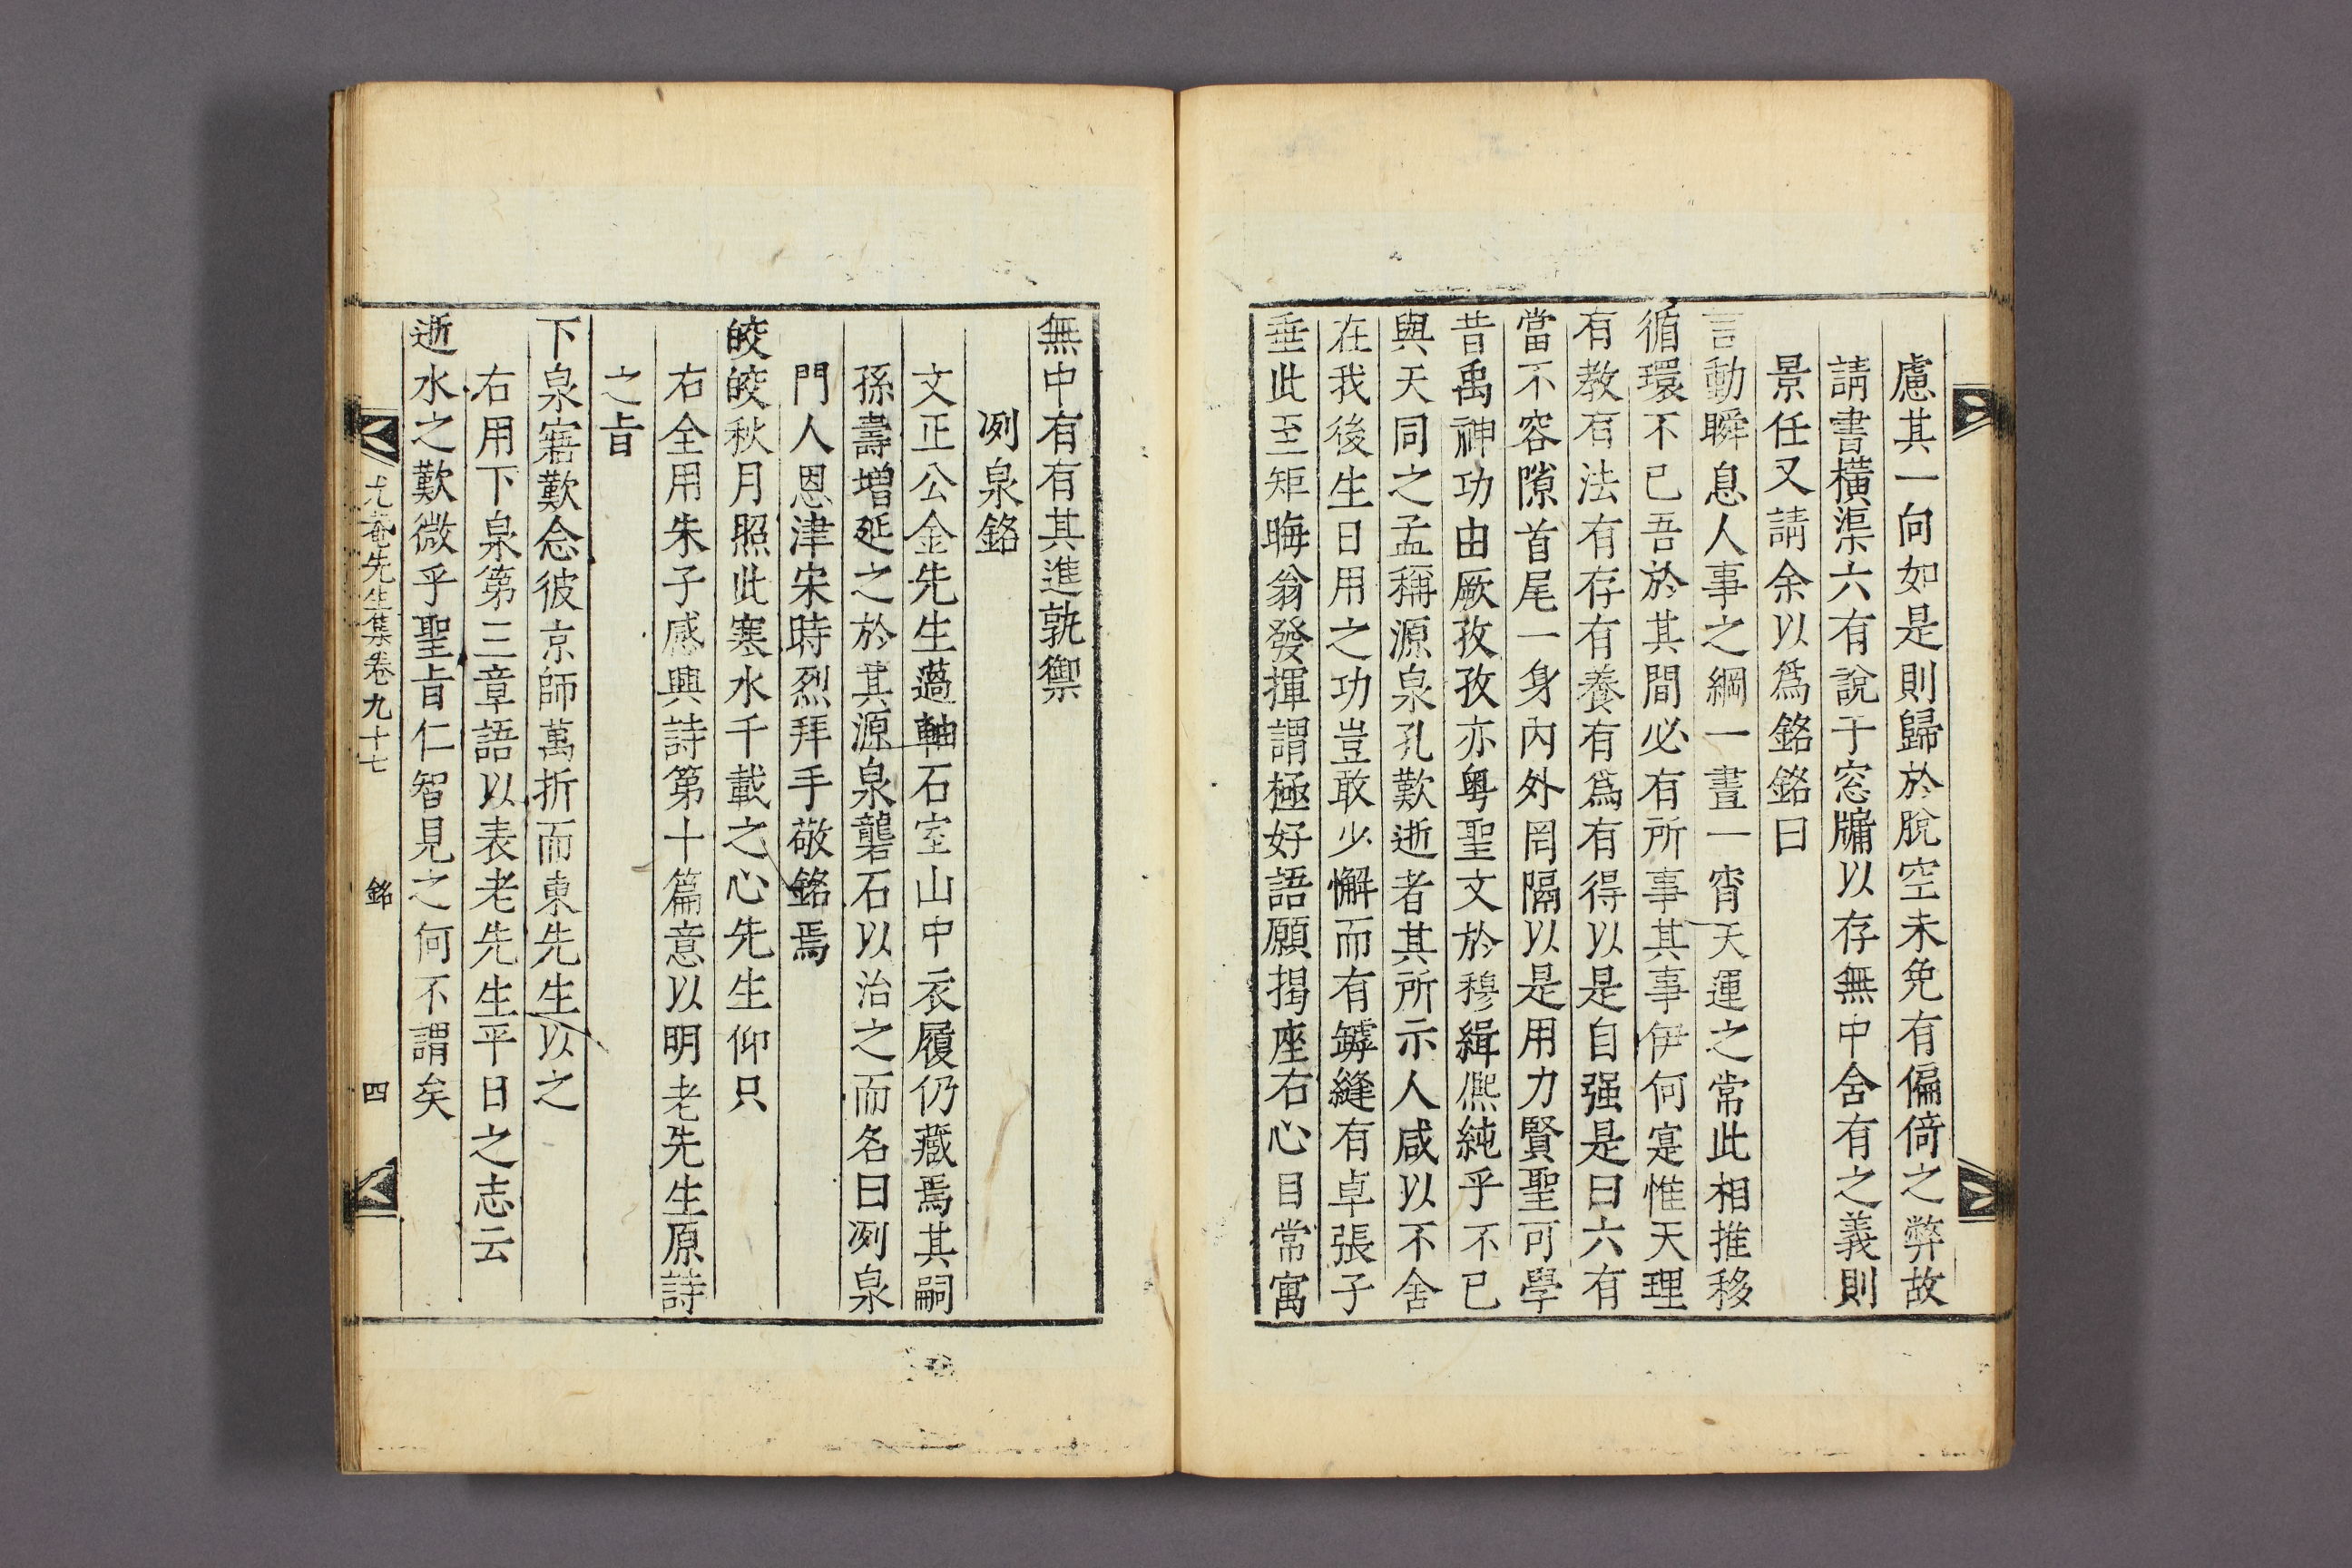 慮其一向如是則歸於脫空未免有偏倚之弊故
請書橫渠六有說于窓牗以存無中含有之義則
景任又請余以爲銘銘曰
言動瞬息人事之綱一晝一宵天運之常此相推移
循環不已吾於其間必有所事其事伊何寔惟天理
有教有法有存有養有爲有得以是自强是曰六有
當不容隙首尾一身內外罔隔以是用力賢聖可學
昔禹神功由厥孜孜亦粤聖文於穆緝熙純乎不已
與天同之孟稱源泉孔歎逝者其所示人咸以不舍
在我後生日用之功豈敢少懈而有罅縫有卓張子
垂此至矩晦翁發揮謂極好語願揭座右心目常寓
無中有有其進孰禦
冽泉銘
文正公金先生薖軸石室山中衣履仍藏焉其嗣
孫壽增延之於其源泉礱石以治之而名曰冽泉
門人恩津宋時烈拜手敬銘焉
皎皎秋月照此寒水千載之心先生仰只
右全用朱子感興詩第十篇意以明老先生原詩
之㫖
下泉寤歎念彼京師萬折而東先生以之
右用下泉第三章語以表老先生平日之志云
逝水之歎微乎聖㫖仁智見之何不謂矣
尤菴先生集卷九十七 銘 四